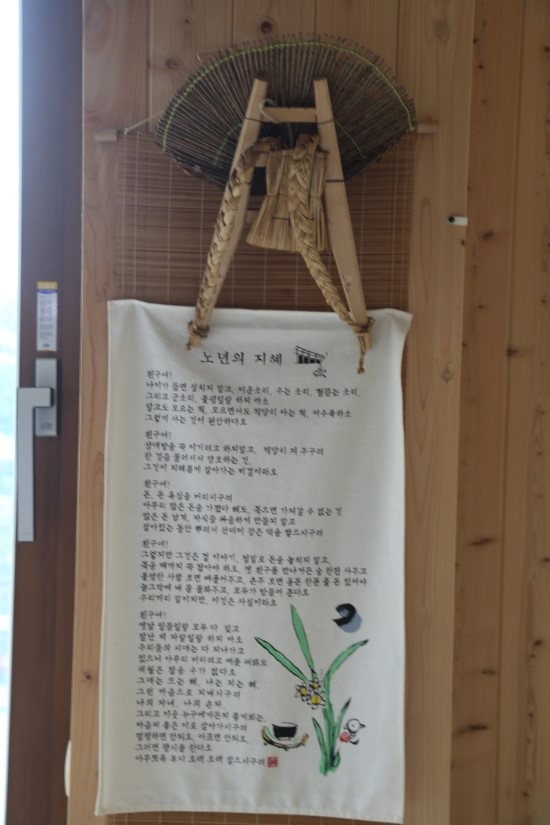 노년의 지혜
친구여!
나이가 들면 설치지 말고, 미운소리, 우는 소리, 헐뜯는 소리,
그리고 군소리, 불평일랑 하지 마소
알고도 모르는 척, 모르면서도 적당히 아는 척, 어수룩하소
그렇게 사는 것이 편안하다오
친구여!
상대방을 꼭 이기려고 하지말고, 적당히 져 주구려
한 걸음 물러서서 양보하는 것,
그것이 지혜롭게 살아가는 비결이라오
친구여!
돈, 돈 욕심을 버리시구려
아무리 많은 돈을 가졌다 해도, 죽으면 가져갈 수 없는 것
많은 돈 남겨, 자식들 싸움하게 만들지 말고
살아있는 동안 뿌려서 산더미 같은 덕을 쌓으시구려
친구여!
그렇지만 그것은 겉 이야기, 정말로 돈을 놓치지 말고,
죽을 때까지 꼭 잡아야 하오, 옛 친구를 만나거든 술 한잔 사주고
불쌍한 사람 보면 베풀어주고, 손주 보면 용돈 한푼 줄 돈 있어야
늘그막에 내 몸 돌봐주고, 모두가 받들어 준다오
우리끼리 말이지만, 이것은 사실이라오
친구여!
옛날 일들일랑 모두 다 잊고
잘난 체 자랑일랑 하지 마오
우리들의 시대는 다 지나가고
있으니 아무리 버티려고 애를 써봐도
세월은 잡을 수가 없다오
그대는 뜨는 해, 나는 지는 해,
그런 마음으로 지내시구려
나의 자녀, 나의 손자,
그리고 이웃 누구에게든지 좋게뵈는,
마음씨 좋은 이로 살아가시구려
멍청하면 안되오, 아프면 안되오,
그러면 괄시를 한다오
아무쪼록 부디 오래 오래 살으시구려